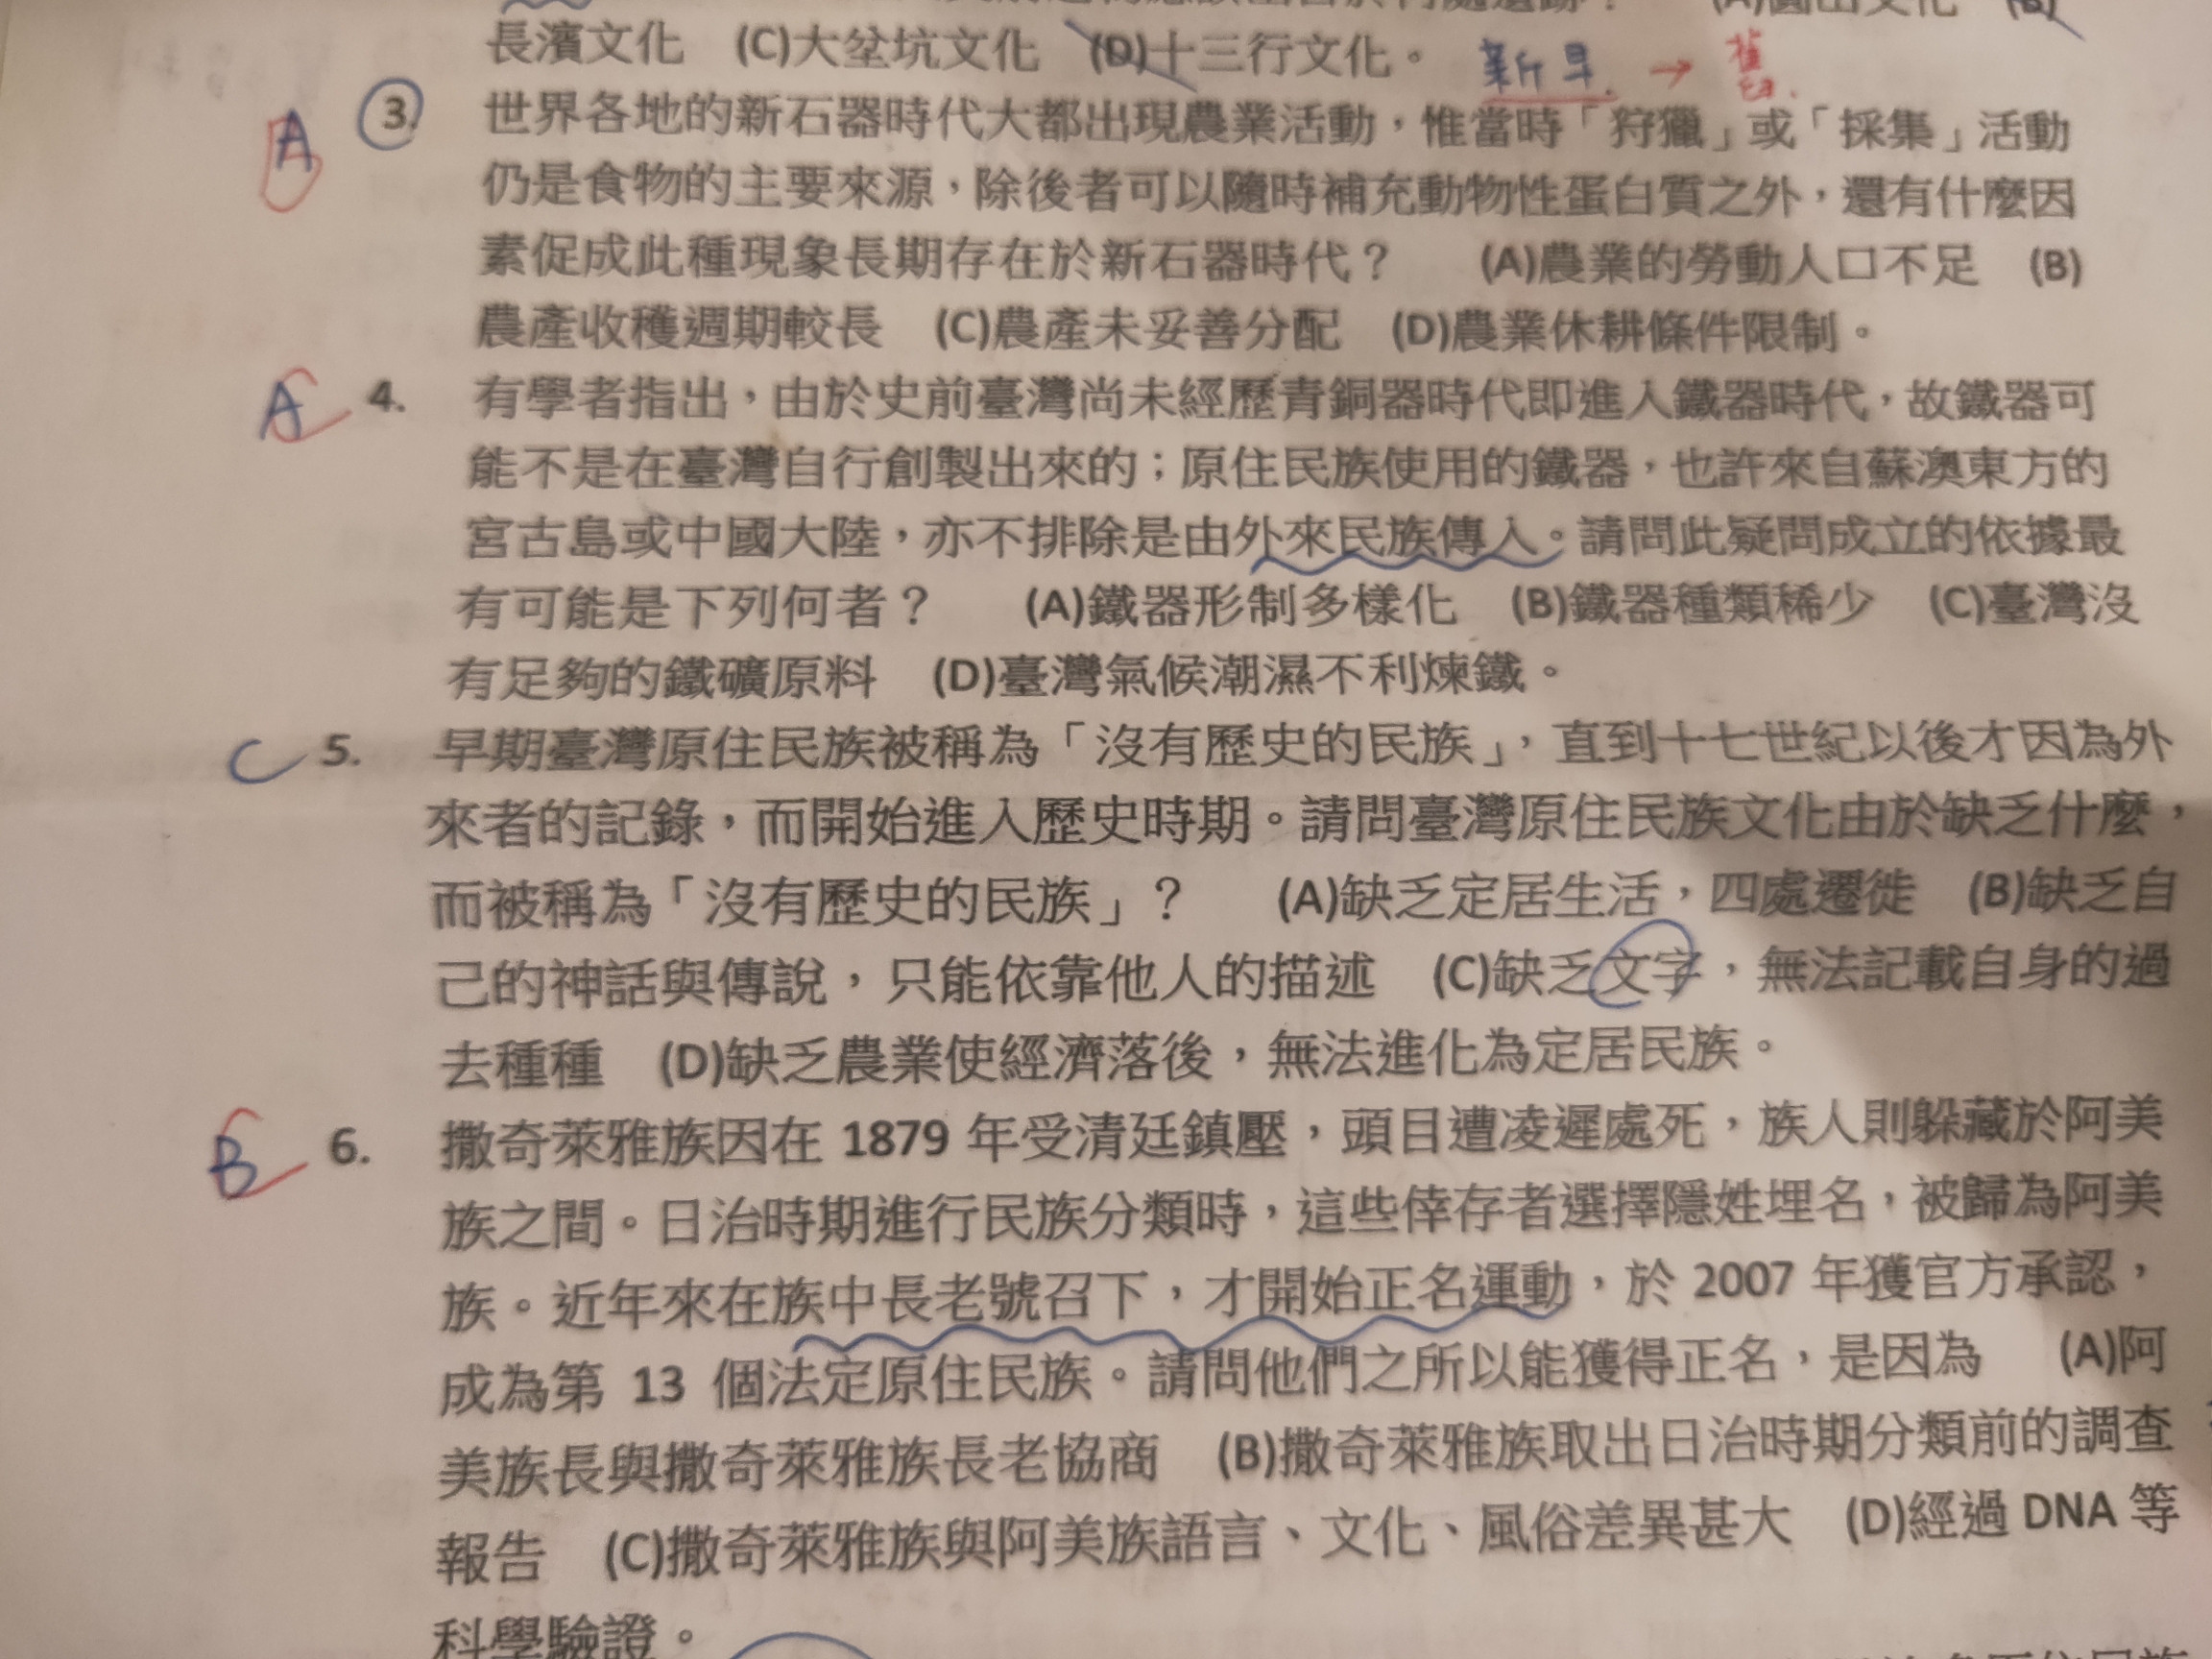 長濱文化 (C)大坌坑文化 (D)十三行文化。 新早. → 舊
A ③ 世界各地的新石器時代大都出現農業活動，惟當時「狩獵」或「採集」活動
仍是食物的主要來源，除後者可以隨時補充動物性蛋白質之外，還有什麼因
素促成此種現象長期存在於新石器時代？ (A)農業的勞動人口不足 (B)
農產收穫週期較長 (C)農產未妥善分配 (D)農業休耕條件限制。
A 4. 有學者指出，由於史前臺灣尚未經歷青銅器時代即進入鐵器時代，故鐵器可
能不是在臺灣自行創製出來的；原住民族使用的鐵器，也許來自蘇澳東方的
宮古島或中國大陸，亦不排除是由外來民族傳入。請問此疑問成立的依據最
有可能是下列何者？ (A)鐵器形制多樣化 (B)鐵器種類稀少 (C)臺灣沒
有足夠的鐵礦原料 (D)臺灣氣候潮濕不利煉鐵。
C 5. 早期臺灣原住民族被稱為「沒有歷史的民族」，直到十七世紀以後才因為外
來者的記錄，而開始進入歷史時期。請問臺灣原住民族文化由於缺乏什麼，
而被稱為「沒有歷史的民族」？ (A)缺乏定居生活，四處遷徙 (B)缺乏自
己的神話與傳說，只能依靠他人的描述 (C)缺乏文字，無法記載自身的過
去種種 (D)缺乏農業使經濟落後，無法進化為定居民族。
B 6. 撒奇萊雅族因在 1879 年受清廷鎮壓，頭目遭凌遲處死，族人則躲藏於阿美
族之間。日治時期進行民族分類時，這些倖存者選擇隱姓埋名，被歸為阿美
族。近年來在族中長老號召下，才開始正名運動，於 2007 年獲官方承認，
成為第 13 個法定原住民族。請問他們之所以能獲得正名，是因為 (A)阿
美族長與撒奇萊雅族長老協商 (B)撒奇萊雅族取出日治時期分類前的調查
報告 (C)撒奇萊雅族與阿美族語言、文化、風俗差異甚大 (D)經過 DNA 等
科學驗證。